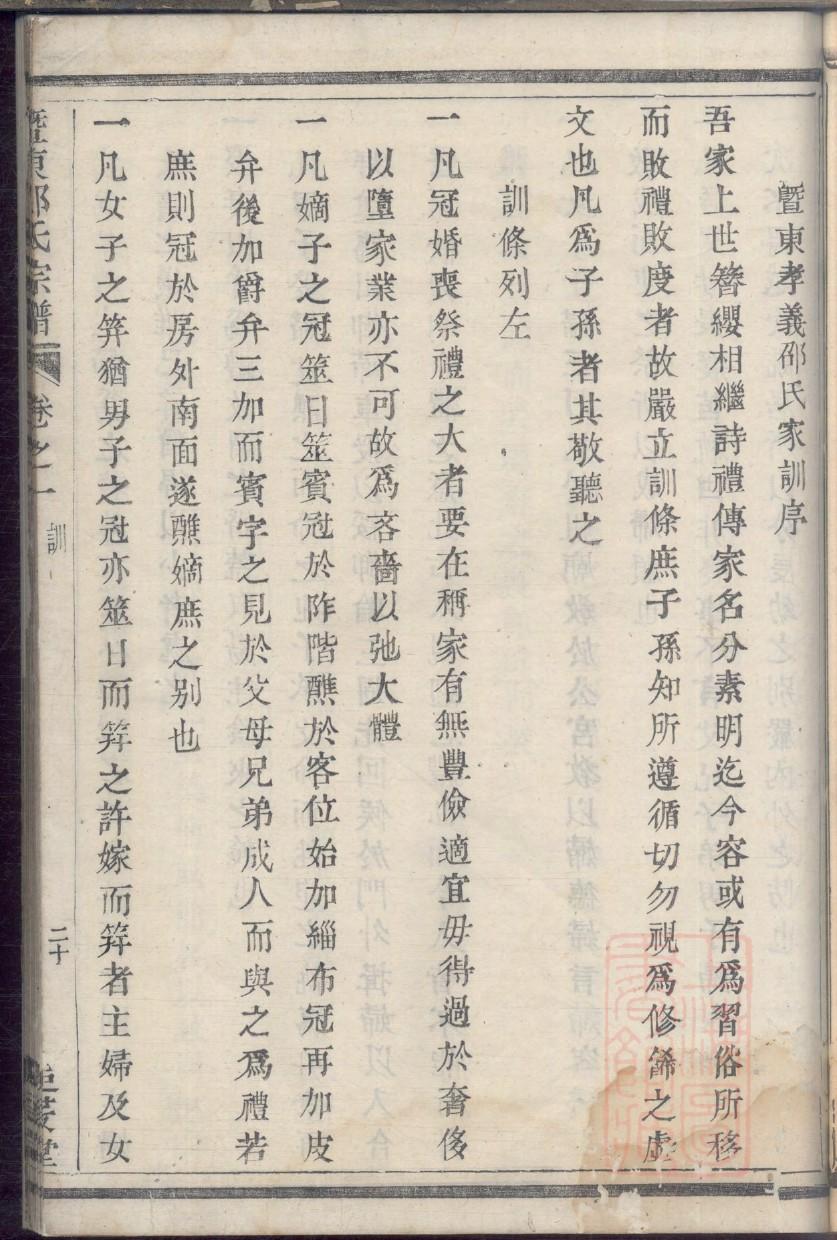 暨東孝義邵氏家訓序
吾家上世簪纓相繼詩禮傳家名分素明迄今容或有爲習俗所移
而敗禮敗度者故嚴立訓條庶子孫知所遵循切勿視爲修餙之虛
文也凡爲子孫者其敬聽之
訓條列左
一凡冠婚喪祭禮之大者要在稱家有無豐儉適宜毋得過於奢侈
以墮家業亦不可故爲吝嗇以弛大體
一凡嫡子之冠筮日筮賓冠於阼階醮於客位始加緇布冠再加皮
弁後加爵弁三加而賓字之見於父母兄弟成人而與之爲禮若
庶則冠於房外南面遂醮嫡庶之别也
一凡女子之笄猶男子之冠亦筮日而笄之許嫁而笄者主婦及女
暨東邵氏宗譜 卷之一 訓 二十